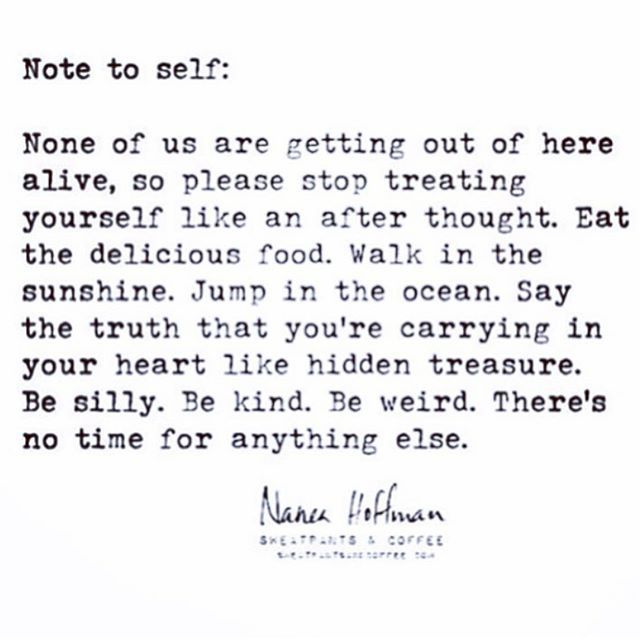 Note to self:
None of us are getting out of here
alive, so please stop treating
yourself like an after thought. Eat
the delicious food. Walk in the
sunshine. Jump in the ocean. Say
the truth that you're carrying in
your heart like hidden treasure.
Be silly. Be kind. Be weird. There's
no time for anything else.
Nanea Hoffman
SWEATPANTS & COFFEE